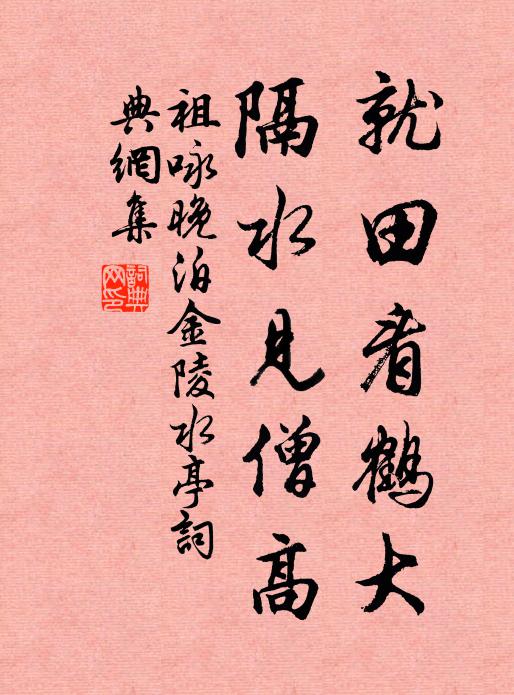 就田看鶴大
隔水見僧高
祖咏晚泊金陵水亭詞
典網集
詞典
网印